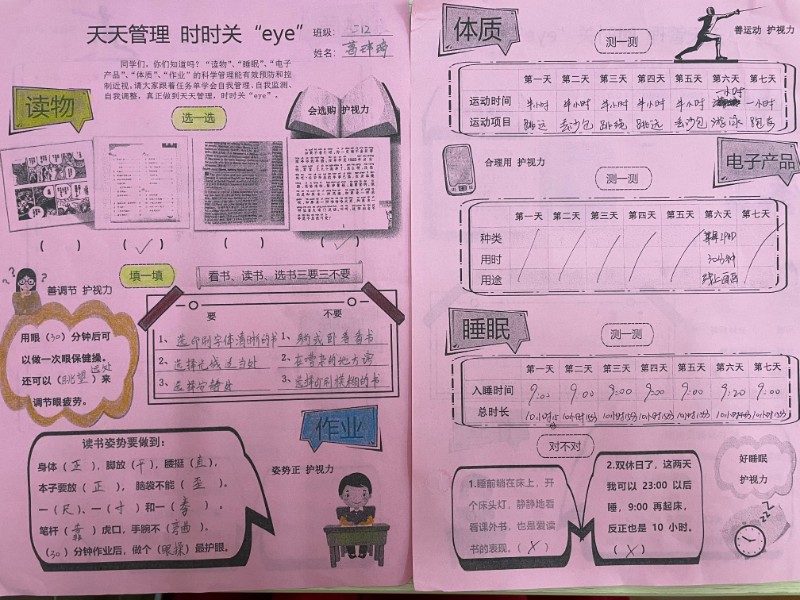 天天管理 时时关“eye”
班级：二12
姓名：
同学们，你们知道吗？“读物”、“睡眠”、“电子
产品”、“体质”、“作业”的科学管理能有效预防和控
制近视。请大家跟着任务单学会自我管理、自我监测、
自我调整，真正做到天天管理，时时关“eye”。
读物
选一选
会选购 护视力
( ) (✓) ( ) ( )
善调节 护视力
填一填
看书、读书、选书三要三不要
用眼（30）分钟后可
以做一次眼保健操。
还可以（眺望远处）来
调节眼疲劳。
要 不要
1、选印刷字体清晰的书 1、躺或卧着看书
2、选择光线适当处 2、在昏暗的地方读
3、选择安静处 3、选择印刷模糊的书
读书姿势要做到：
身体（正），脚放（平），腰挺（直），
本子要放（正），脑袋不能（歪）。
一（尺）、一（寸）和一（拳），
笔杆（靠）虎口，手腕不（弯曲）。
（30）分钟作业后，做个（眼操）最护眼。
作业
姿势正 护视力
体质
测一测
善运动 护视力
第一天 第二天 第三天 第四天 第五天 第六天 第七天
运动时间 半小时 半小时 半小时 半小时 半小时 一小时 一小时
运动项目 跳远 丢沙包 跳绳 跳远 丢沙包 游泳 跑步
合理用 护视力
测一测
电子产品
第一天 第二天 第三天 第四天 第五天 第六天 第七天
种类
用时 30分钟
用途 线上画画
睡眠
测一测
第一天 第二天 第三天 第四天 第五天 第六天 第七天
入睡时间 9:00 9:00 9:00 9:00 9:00 9:20 9:00
总时长
对不对
1.睡前躺在床上，开
个床头灯，静静地看
看课外书，也是爱读
书的表现。（X）
2.双休日了，这两天
我可以 23:00 以后
睡，9:00 再起床，
反正也是 10 小时。
（X）
好睡眠
护视力